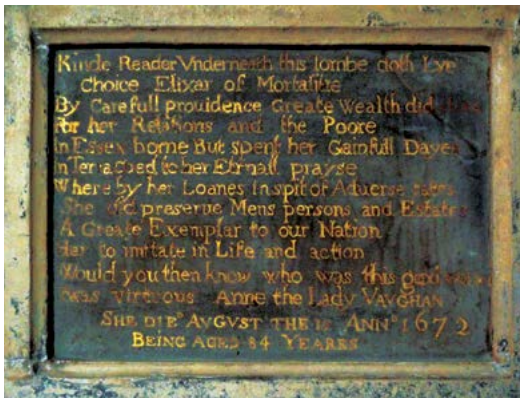 Kinde Reader Vnderneath this tombe doth Lye
Choice Elixar of Mortalitie
By Carefull prouidence Greate Wealth did
For her Relations and the Poore
In Essex borne But spent her Gainfull Dayes
In Terra to her Eternall prayse
Where by her Loanes In spit of Aduerse fates
She did preserue Mens persons and Estates
A Greate Exemplar to our Nation
Her to imitate in Life and action
Would you then know who was this good
twas virtuous Anne the Lady VAVGHAN
SHE DIED AVGVST THE 15 ANNO 1672
BEING AGED 84 YEARES